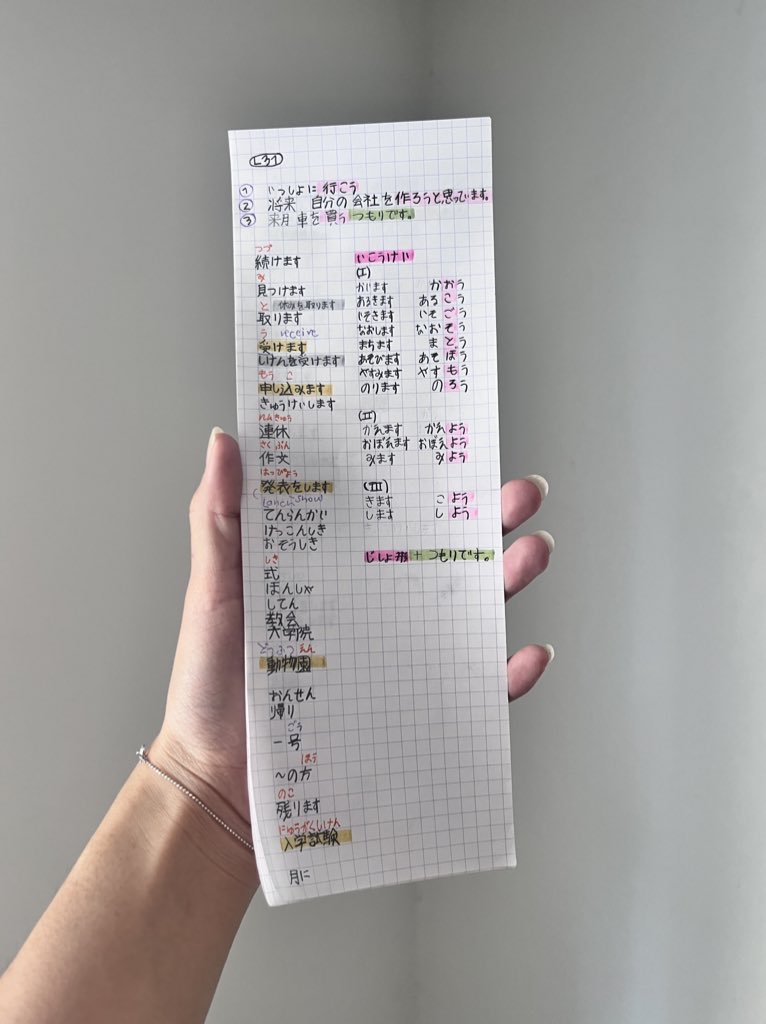 L31
① いっしょに 行こう
② 将来 自分の会社を作ろうと思っています。
③ 来月 車を買う つもりです。
つづ
続けます
み
見つけます
と 休みを取ります
取ります
う receive
受けます
しけんを受けます
もう こ
申し込みます
きゅうけいします
れんきゅう
連休
さくぶん
作文
はっぴょう
発表をします
てんらんかい
けっこんしき
おそうしき
しき
式
ほんしゃ
してん
教会
大学院
どうぶつえん
動物園
おんせん
帰り
ごう
一号
ほう
〜の方
のこ
残ります
にゅうがくしけん
入学試験
月に
いこうけい
(I)
かいます かおう
あるきます あるこう
いそぎます いそごう
なおします なおそう
まちます まとう
あそびます あそぼう
やすみます やすもう
のります のろう
(II)
かえます かえよう
おぼえます おぼえよう
みます みよう
(III)
きます こよう
します しよう
じしょ形 + つもりです。